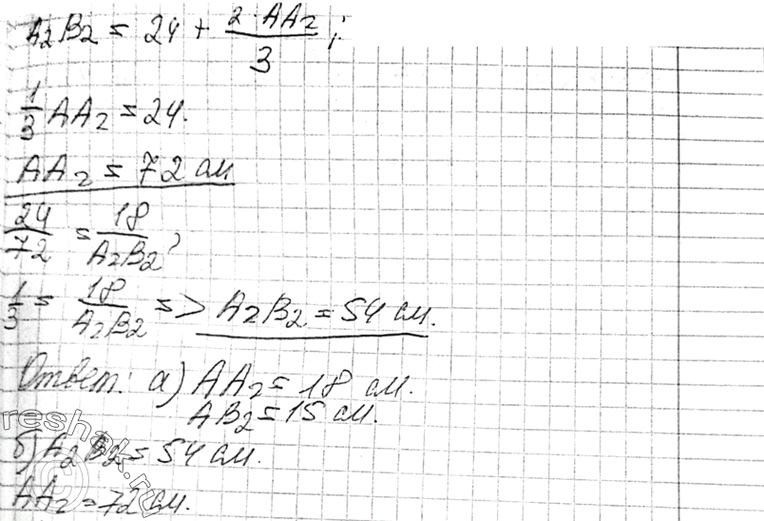 A₂B₂ = 24 + (2·AA₂)/3;
1/3 AA₂ = 24.
AA₂ = 72 см
24/72 = 18/A₂B₂;
1/3 = 18/A₂B₂ => A₂B₂ = 54 см.
Ответ: а) AA₂ = 18 см.
AB₂ = 15 см.
б) A₂B₂ = 54 см.
AA₂ = 72 см.